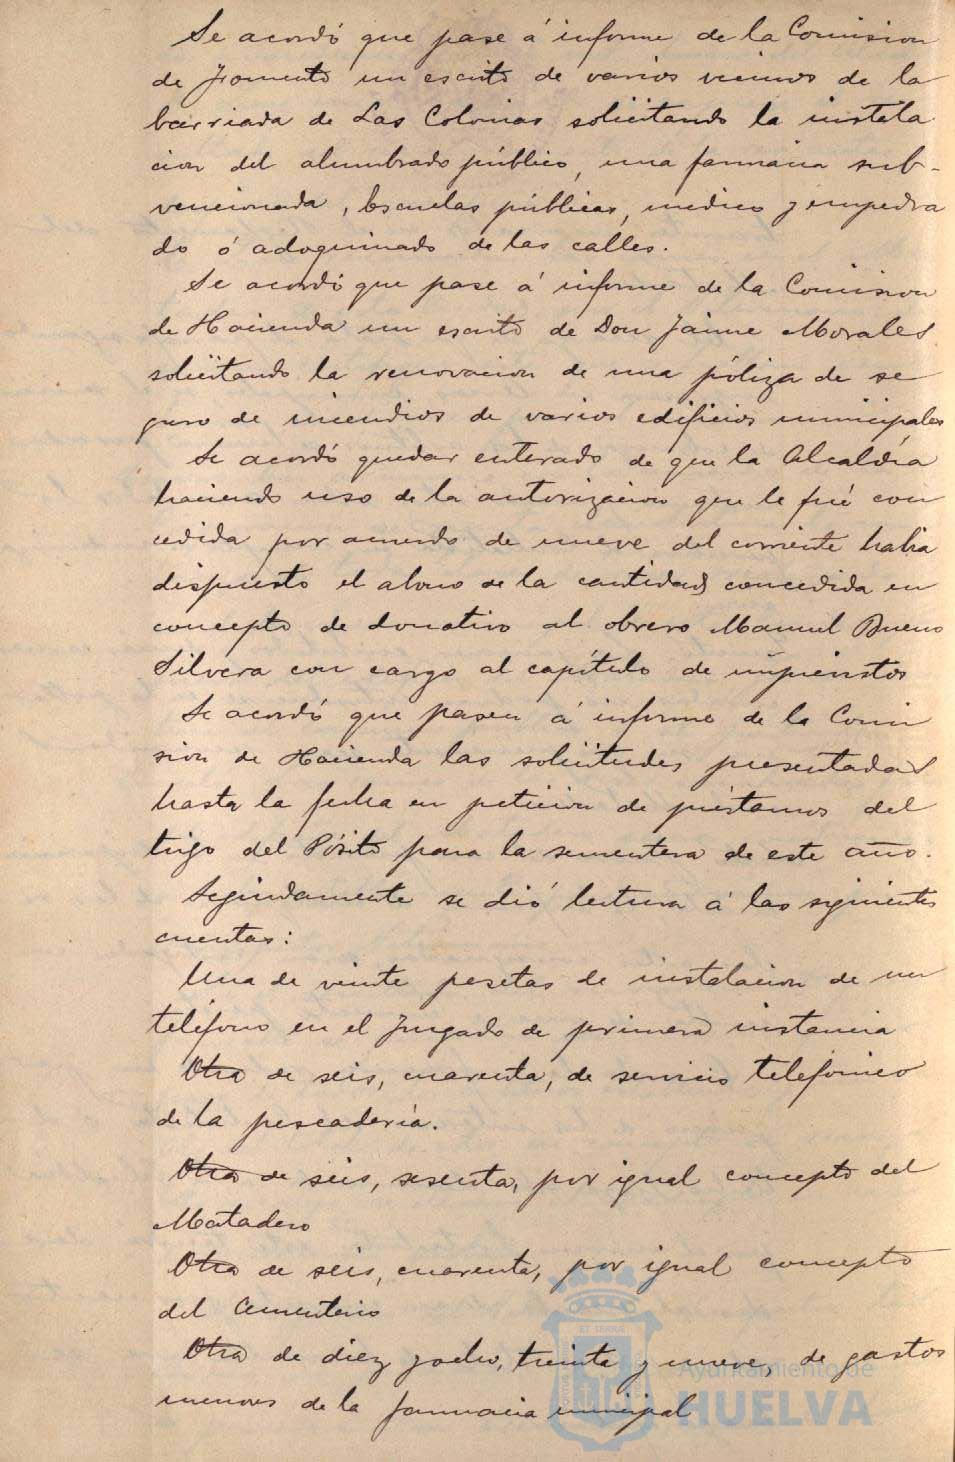 Se acordó que pase á informe de la Comision
de Fomento un escrito de varios vecinos de la
barriada de Las Colonias solicitando la instala
cion del alumbrado público, una farmacia sub-
vencionada, Escuelas públicas, medico y empedra
do ó adoquinado de las calles.
Se acordó que pase á informe de la Comision
de Hacienda un escrito de Don Jaime Morales
solicitando la renovacion de una póliza de se
guro de incendios de varios edificios municipales
Se acordó quedar enterado de que la Alcaldía
haciendo uso de la autorizacion que le fué con
cedida por acuerdo de nueve del corriente habia
dispuesto el abono de la cantidad concedida en
concepto de donativo al obrero Manuel Bueno
Silvera con cargo al capítulo de imprevistos
Se acordó que pasen á informe de la Comi
sion de Hacienda las solicitudes presentadas
hasta la fecha en peticion de préstamos del
trigo del Pósito para la sementera de este año.
Seguidamente se dió lectura á las siguientes
cuentas:
Una de veinte pesetas de instalacion de un
teléfono en el Juzgado de primera instancia
Otra de seis, cuarenta, de servicio telefónico
de la pescadería.
Otra de seis, sesenta, por igual concepto del
Matadero
Otra de seis, cuarenta, por igual concepto
del Cementerio
Otra de diez y ocho, treinta y nueve, de gastos
menores de la farmacia municipal
Ayuntamiento de
HUELVA